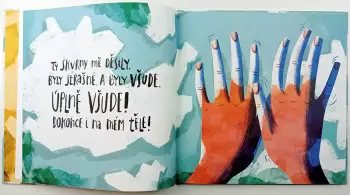 TY SKVRNY MĚ DĚSILY.
BYLY STRAŠNÉ A BYLY VŠUDE.
ÚPLNĚ VŠUDE!
DOKONCE I NA MÉM TĚLE!